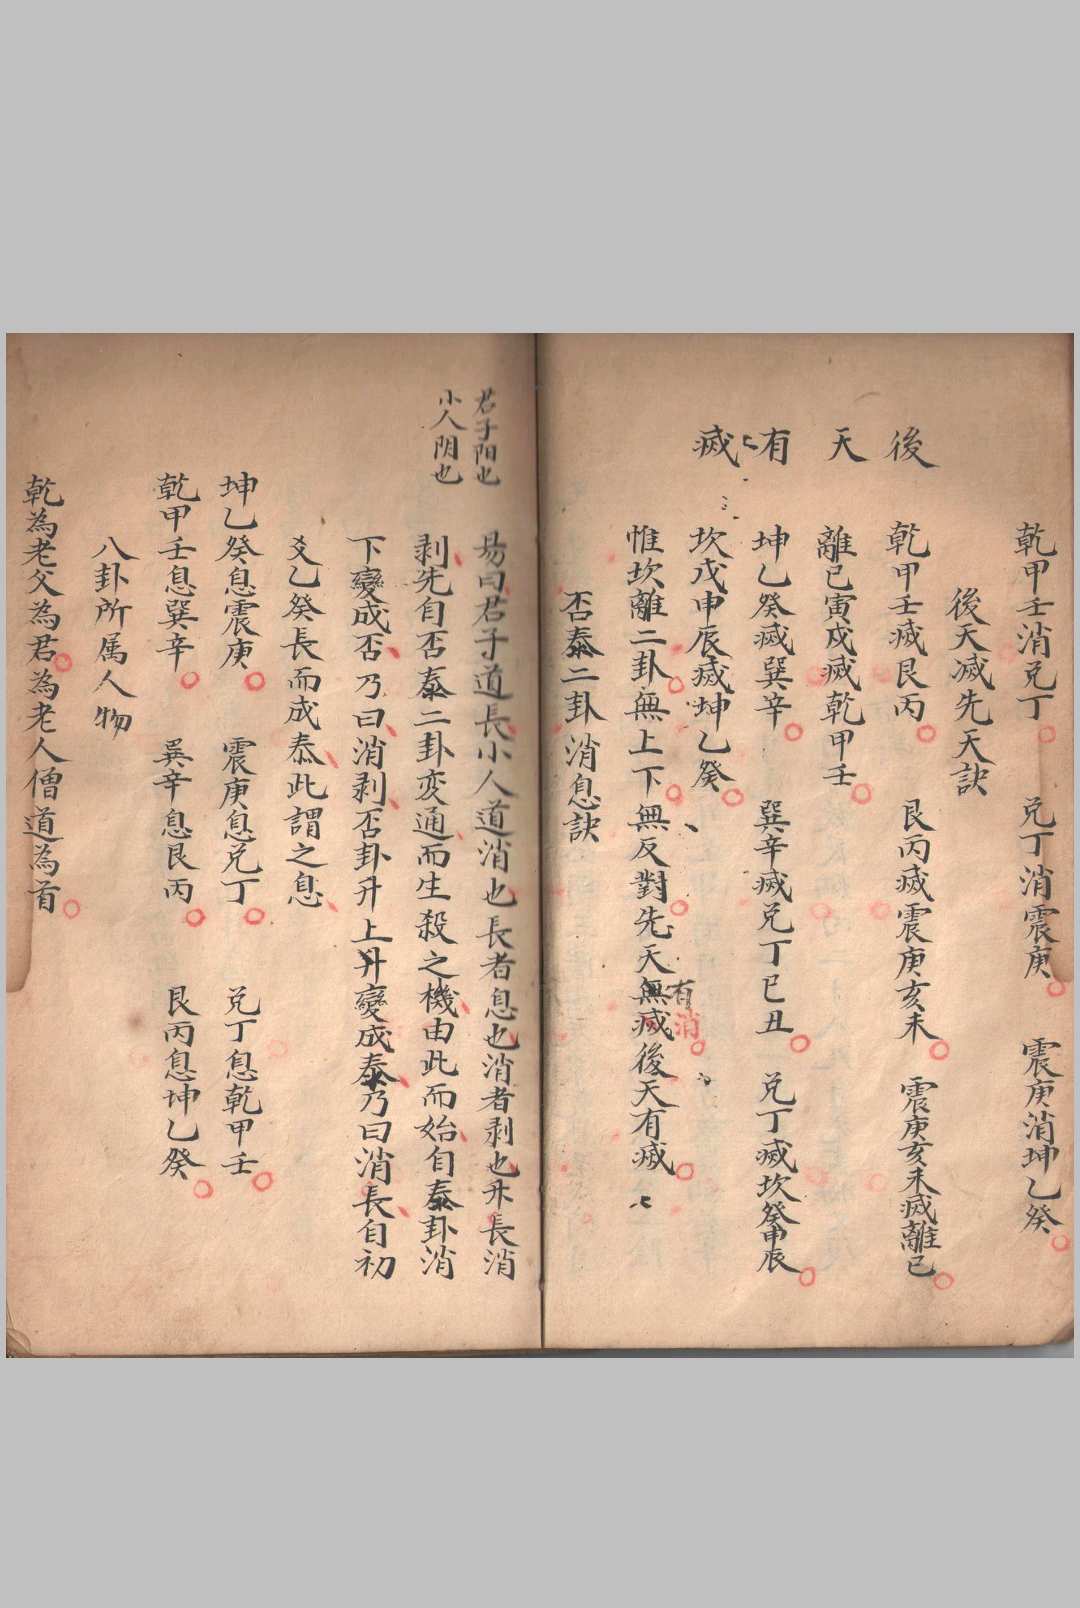 乾甲壬消兌丁 兌丁消震庚 震庚消坤乙癸
後天滅先天訣
後天有滅
乾甲壬滅艮丙 艮丙滅震庚亥未 震庚亥未滅離已
離已寅戍滅乾甲壬
坤乙癸滅巽辛 巽辛滅兌丁巳丑 兌丁滅坎癸申辰
坎戊申辰滅坤乙癸
惟坎離二卦無上下無反對先天無滅後天有滅
有消
否泰二卦消息訣
君子陽也
小人阴也
易曰君子道長小人道消也長者息也消者剥也升長消
剥先自否泰二卦变通而生殺之機由此而始自泰卦消
下變成否乃曰消剥否卦升上升變成泰乃曰消長自初
爻乙癸長而成泰此謂之息
坤乙癸息震庚 震庚息兌丁 兌丁息乾甲壬
乾甲壬息巽辛 巽辛息艮丙 艮丙息坤乙癸
八卦所属人物
乾為老父為君為老人僧道為首